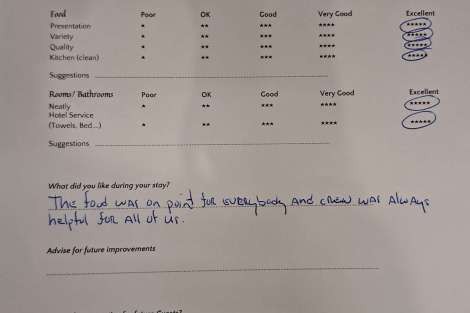 Food Poor OK Good Very Good Excellent
Presentation * ** *** **** *****
Variety * ** *** **** *****
Quality * ** *** **** *****
Kitchen (clean) * ** *** **** *****
Suggestions
Rooms/ Bathrooms Poor OK Good Very Good Excellent
Neatly * ** *** **** *****
Hotel Service
(Towels, Bed...) * ** *** **** *****
Suggestions
What did you like during your stay?
The food was on point for everybody and crew was Always
helpful for All of us.
Advise for future improvements